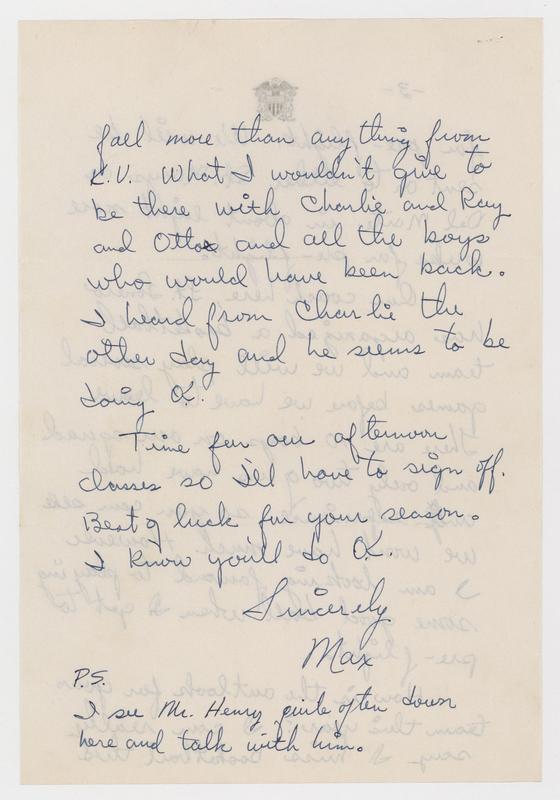 fall more than anything from
K.U. What I wouldn't give to
be there with Charlie and Ray
and Otto and all the boys
who would have been back.
I heard from Charlie the
other day and he seems to be
doing O.K.
Time for our afternoon
classes so I'll have to sign off.
Best of luck for your season.
I know you'll do O.K.
Sincerely
Max
P.S.
I see Mr. Henry quite often down
here and talk with him.